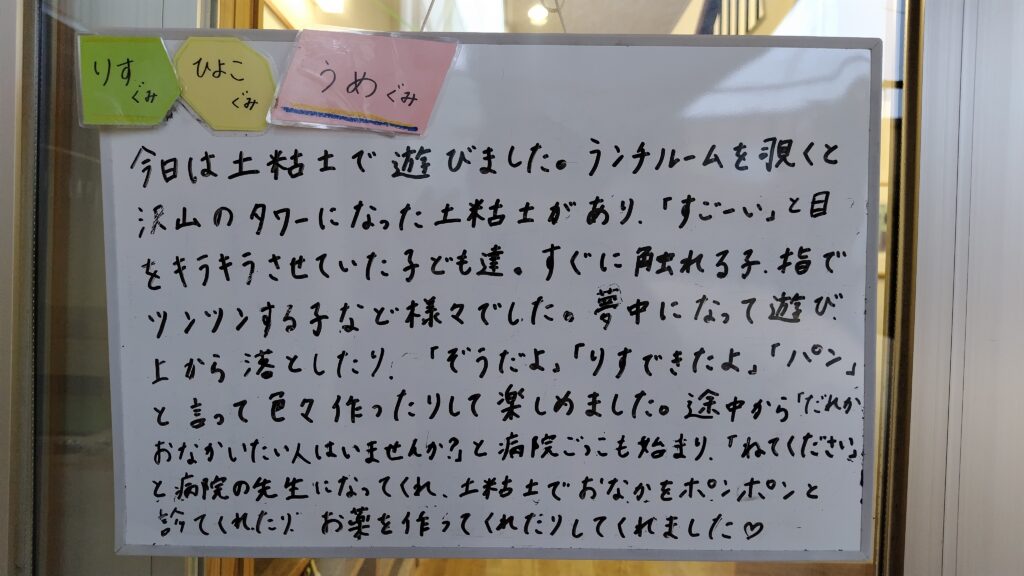 りすぐみ
ひよこぐみ
うめぐみ
今日は土粘土で遊びました。ランチルームを覗くと
沢山のタワーになった土粘土があり、「すごーい」と目
をキラキラさせていた子ども達。すぐに触れる子、指で
ツンツンする子など様々でした。夢中になって遊び、
上から落としたり、「ぞうだよ」「りすできたよ」「パン」
と言って色々作ったりして楽しめました。途中から「だれか
おなかいたい人はいませんか?」と病院ごっこも始まり、「ねてください」
と病院の先生になってくれ、土粘土でおなかをポンポンと
診てくれたり、お薬を作ってくれたりしてくれました♡